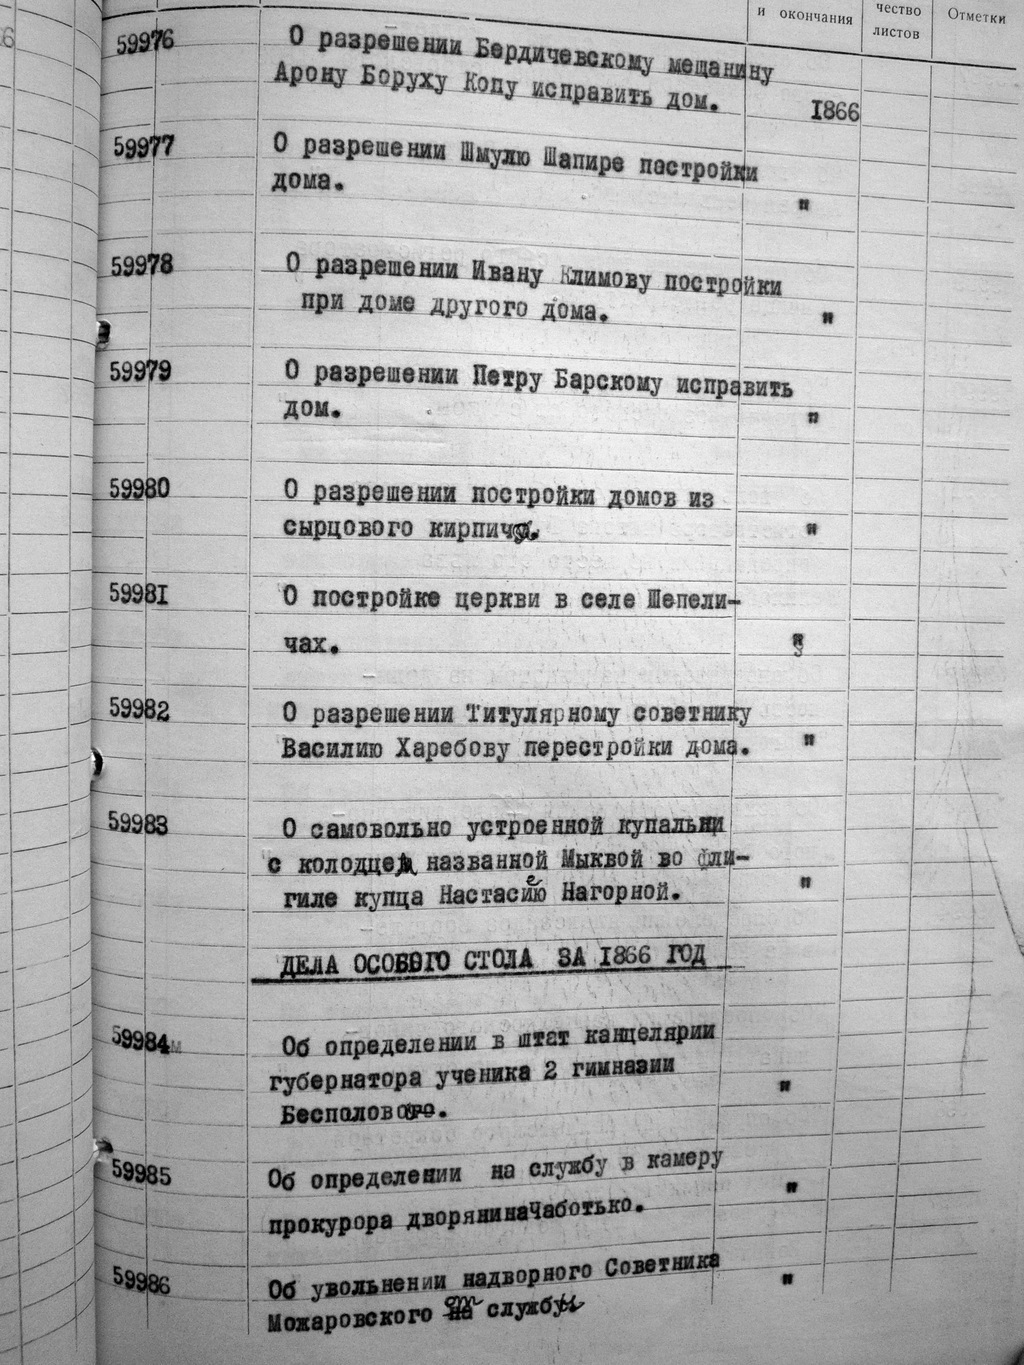 и окончания
чество
листов
Отметки
59976 О разрешении Бердичевскому мещанину
Арону Боруху Копу исправить дом. 1866
59977 О разрешении Шмулю Шапире постройки
дома. "
59978 О разрешении Ивану Климову постройки
при доме другого дома. "
59979 О разрешении Петру Барскому исправить
дом. "
59980 О разрешении постройки домов из
сырцового кирпича. "
59981 О постройке церкви в селе Шепели-
чах. "
59982 О разрешении Титулярному советнику
Василию Харебову перестройки дома. "
59983 О самовольно устроенной купальни
с колодцем названной Мыквой во фли-
гиле купца Настасией Нагорной. "
ДЕЛА ОСОБОГО СТОЛА ЗА 1866 ГОД
59984 Об определении в штат канцелярии
губернатора ученика 2 гимназии "
Бесполово.
59985 Об определении на службу в камеру
прокурора дворянинаЧаботько. "
59986 Об увольнении надворного Советника "
Можаровского от службы